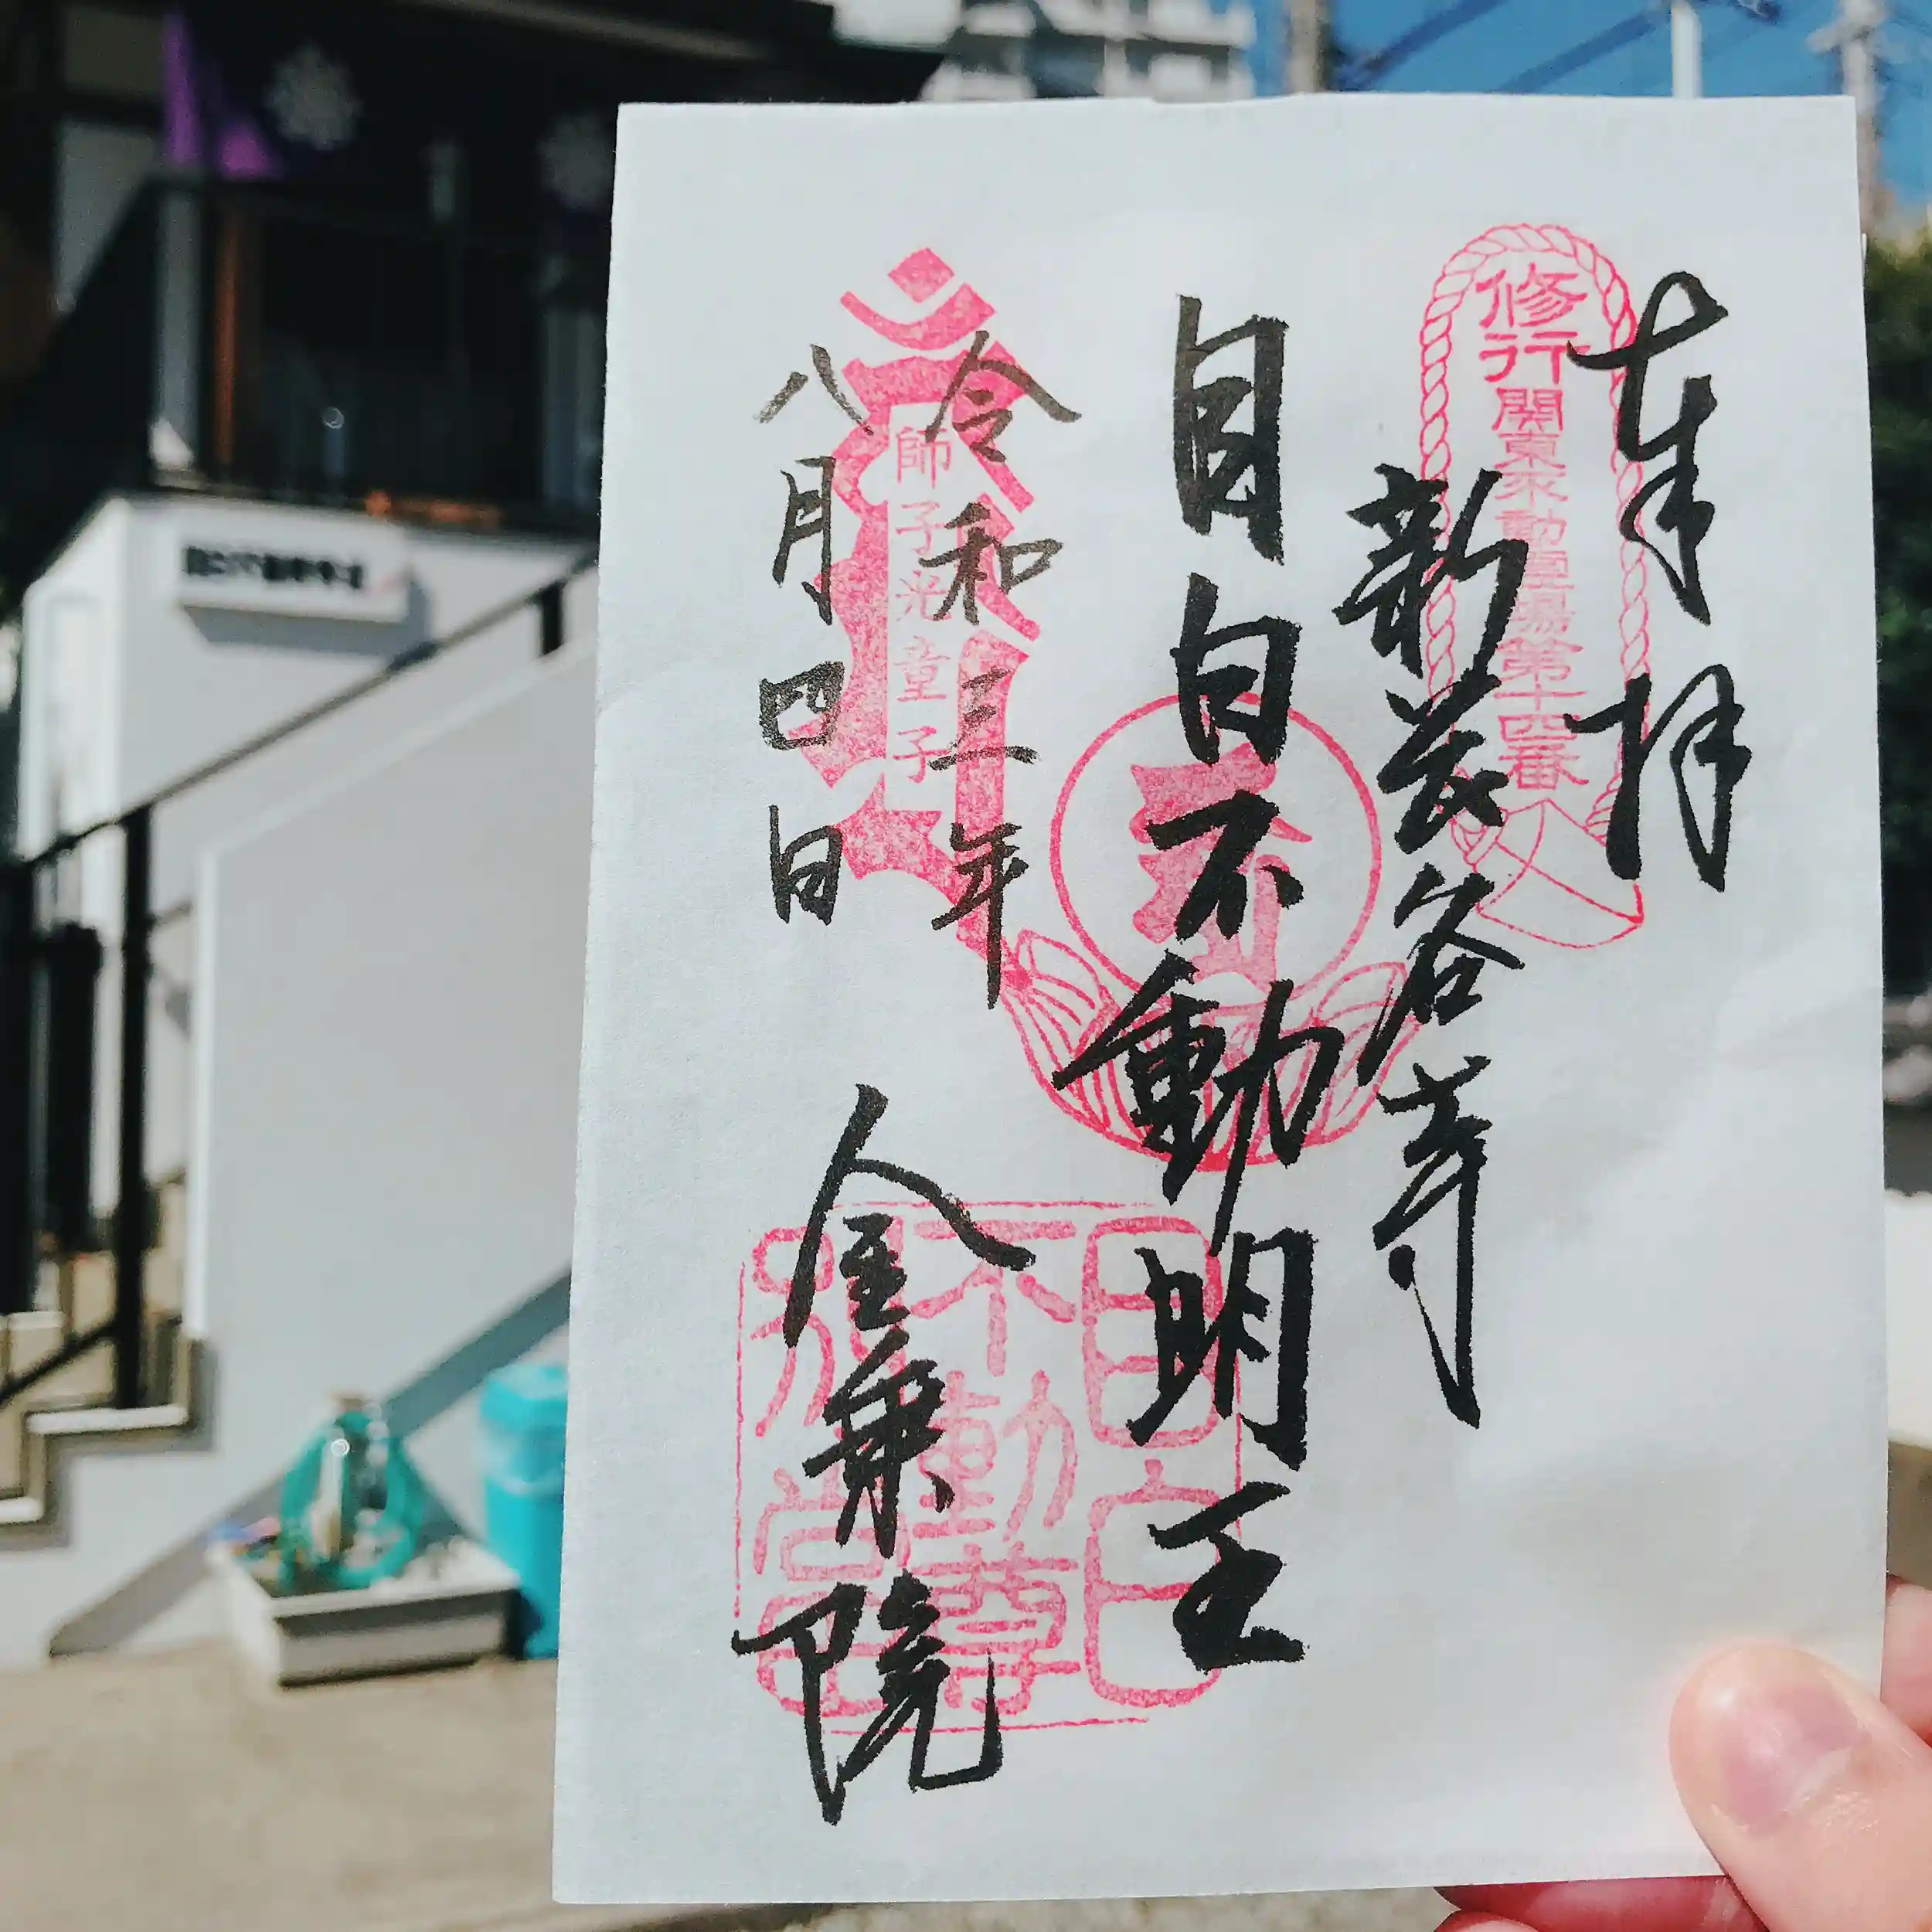 奉拝
修行関東不動霊場第十四番
新長谷寺
目白不動明王
令和三年
八月四日
師子光童子
金乗院
目白
不動尊